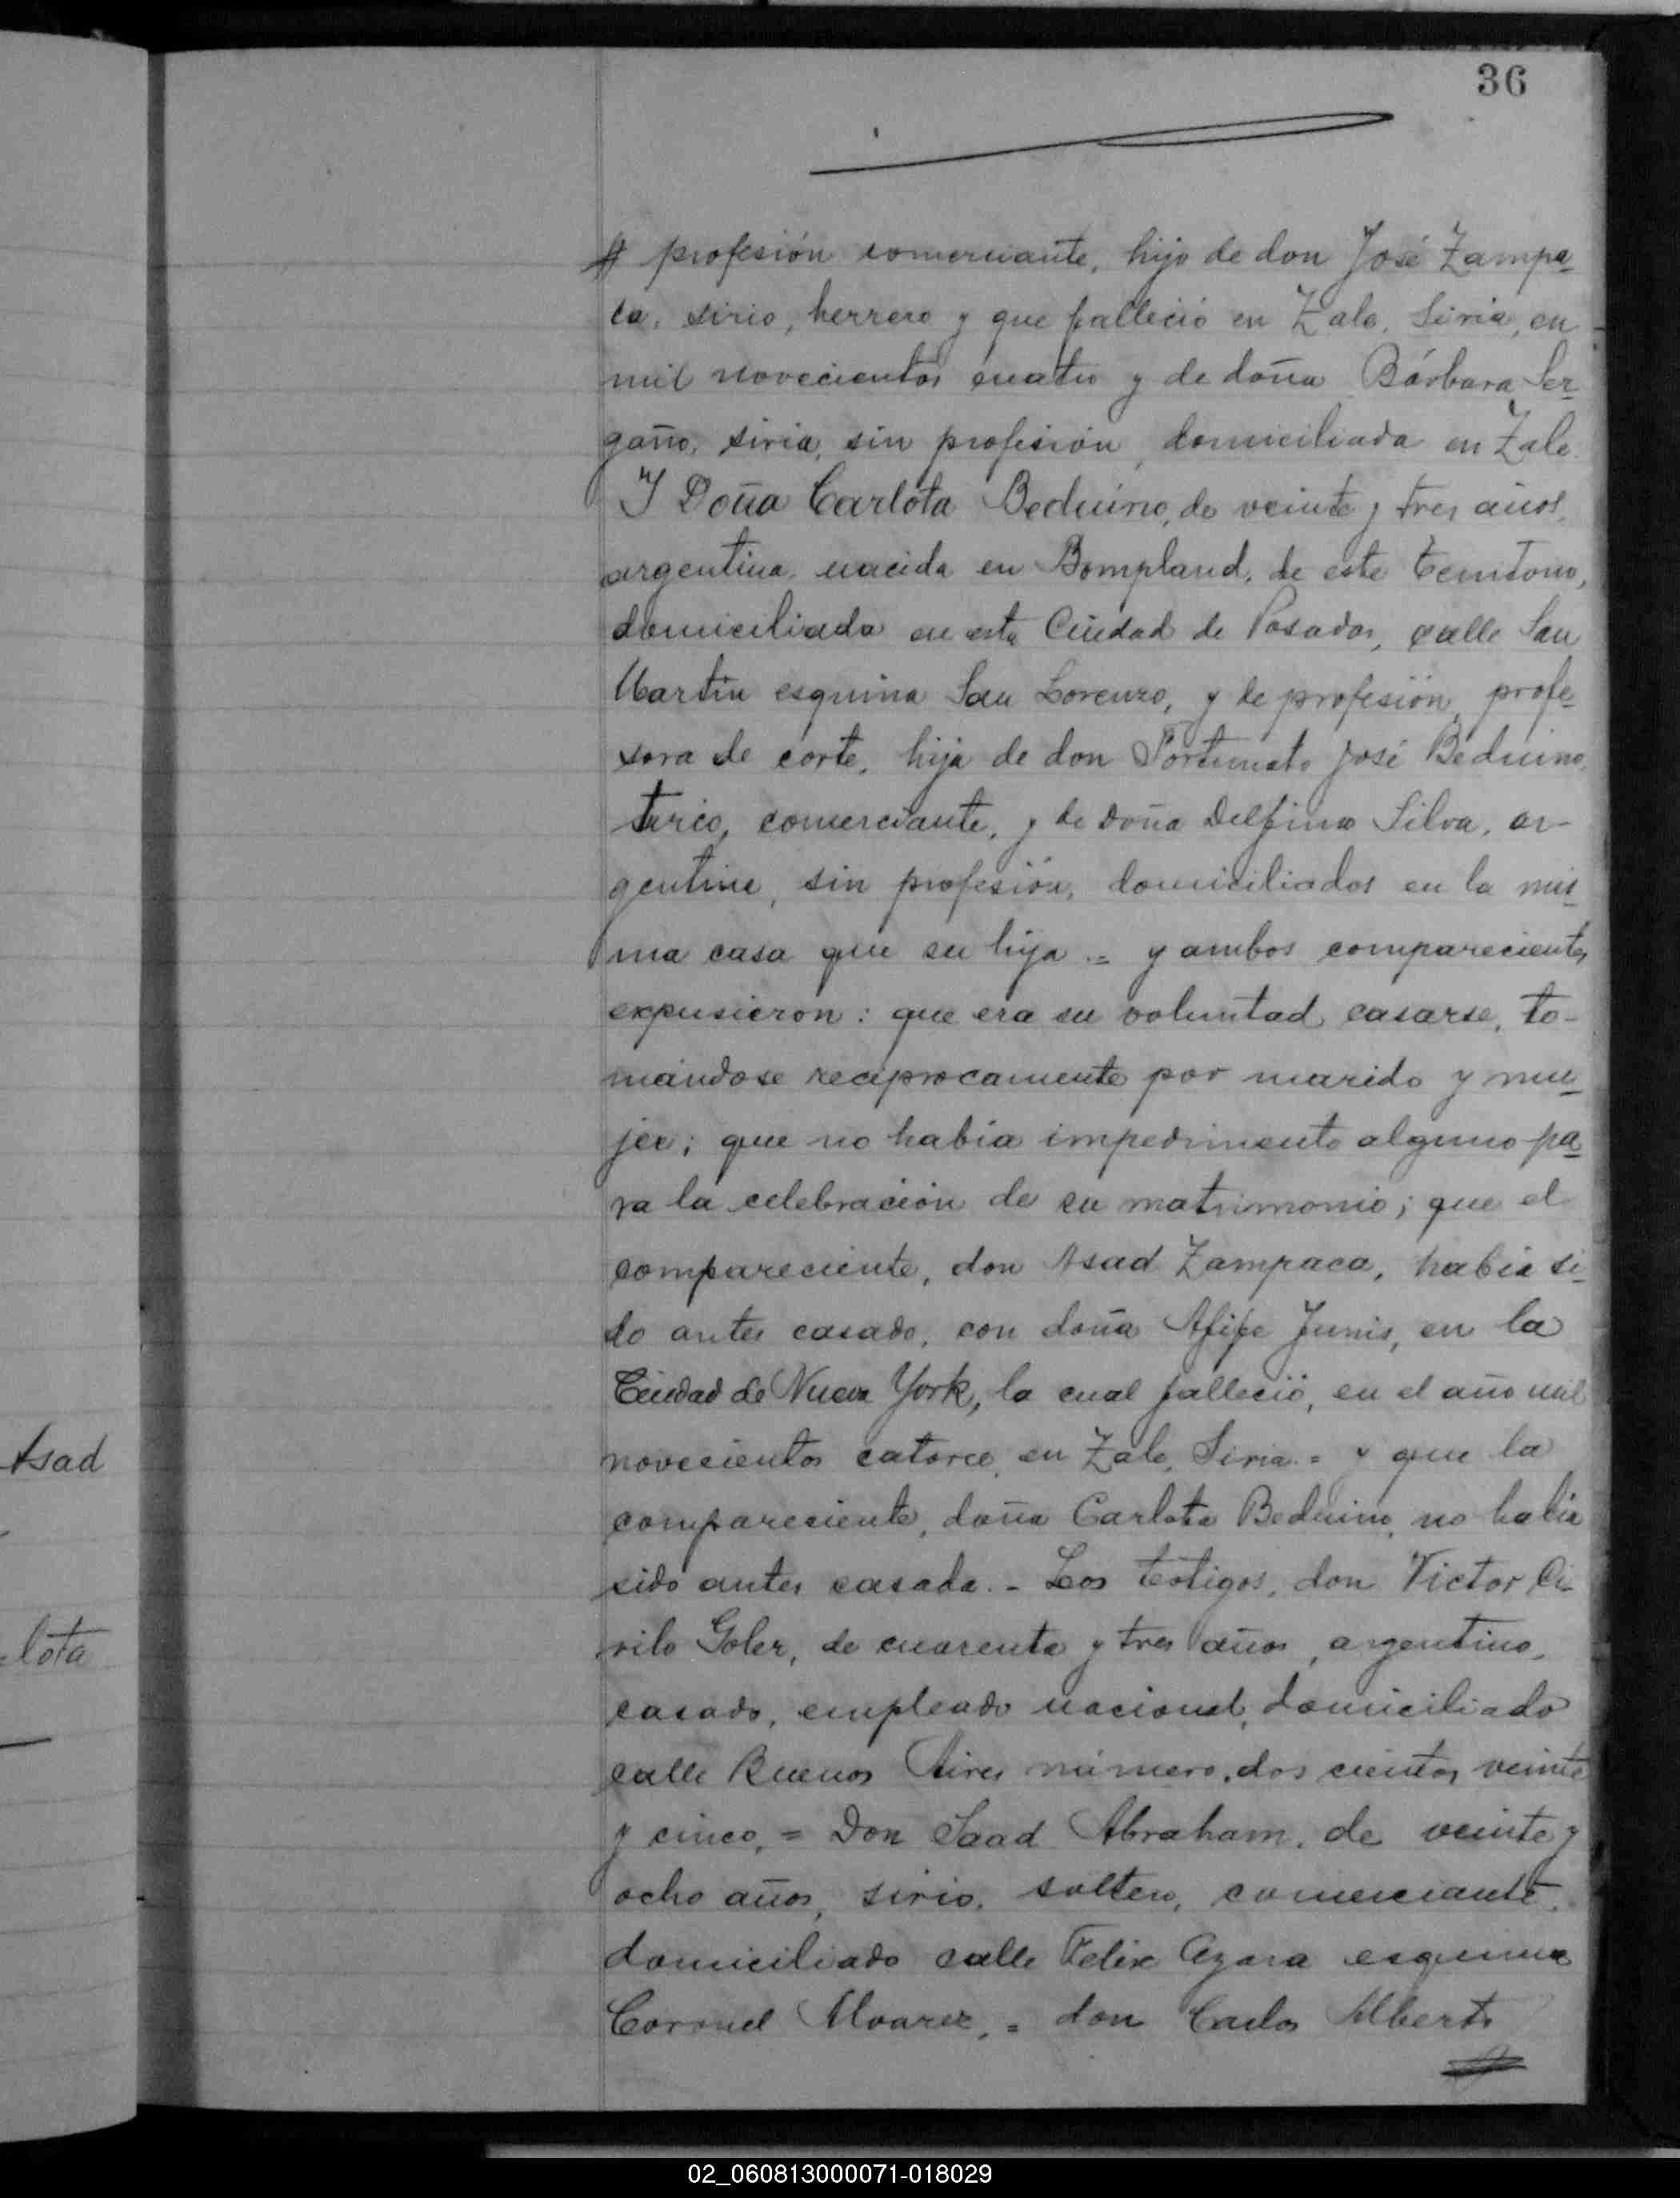 36
profesión comerciante, hijo de don José Zampa
ca, sirio, herrero y que falleció en Zale, Siria, en
mil novecientos cuatro y de doña Bárbara Ser
gaño, siria, sin profesión, domiciliada en Zale.
Y Doña Carlota Beduino, de veinte y tres años,
argentina, nacida en Bompland, de este territorio,
domiciliada en esta Ciudad de Posadas, calle San
Martín esquina San Lorenzo, y de profesión, profe
sora de corte, hija de don Fortunato José Beduino,
turco, comerciante, y de doña Delfina Silva, ar-
gentina, sin profesión, domiciliados en la mis
ma casa que su hija .= y ambos comparecientes
expusieron: que era su voluntad casarse, to-
mándose recíprocamente por marido y mu
jer; que no había impedimento alguno pa
ra la celebración de su matrimonio; que el
compareciente, don Asad Zampaca, había si
do antes casado, con doña Afife Junis, en la
Ciudad de Nueva York, la cual falleció, en el año mil
novecientos catorce, en Zale, Siria.= y que la
compareciente, doña Carlota Beduino, no había
sido antes casada.- Los testigos, don Victor Ci
rilo Goler, de cuarenta y tres años, argentino,
casado, empleado nacional, domiciliado
calle Buenos Aires número, dos cientos veinte
y cinco, = Don Saad Abraham, de veinte y
ocho años, sirio, soltero, comerciante,
domiciliado calle Felix Azara esquina
Coronel Alvarez, = don Carlos Alberto
Asad
lota
02_060813000071-018029